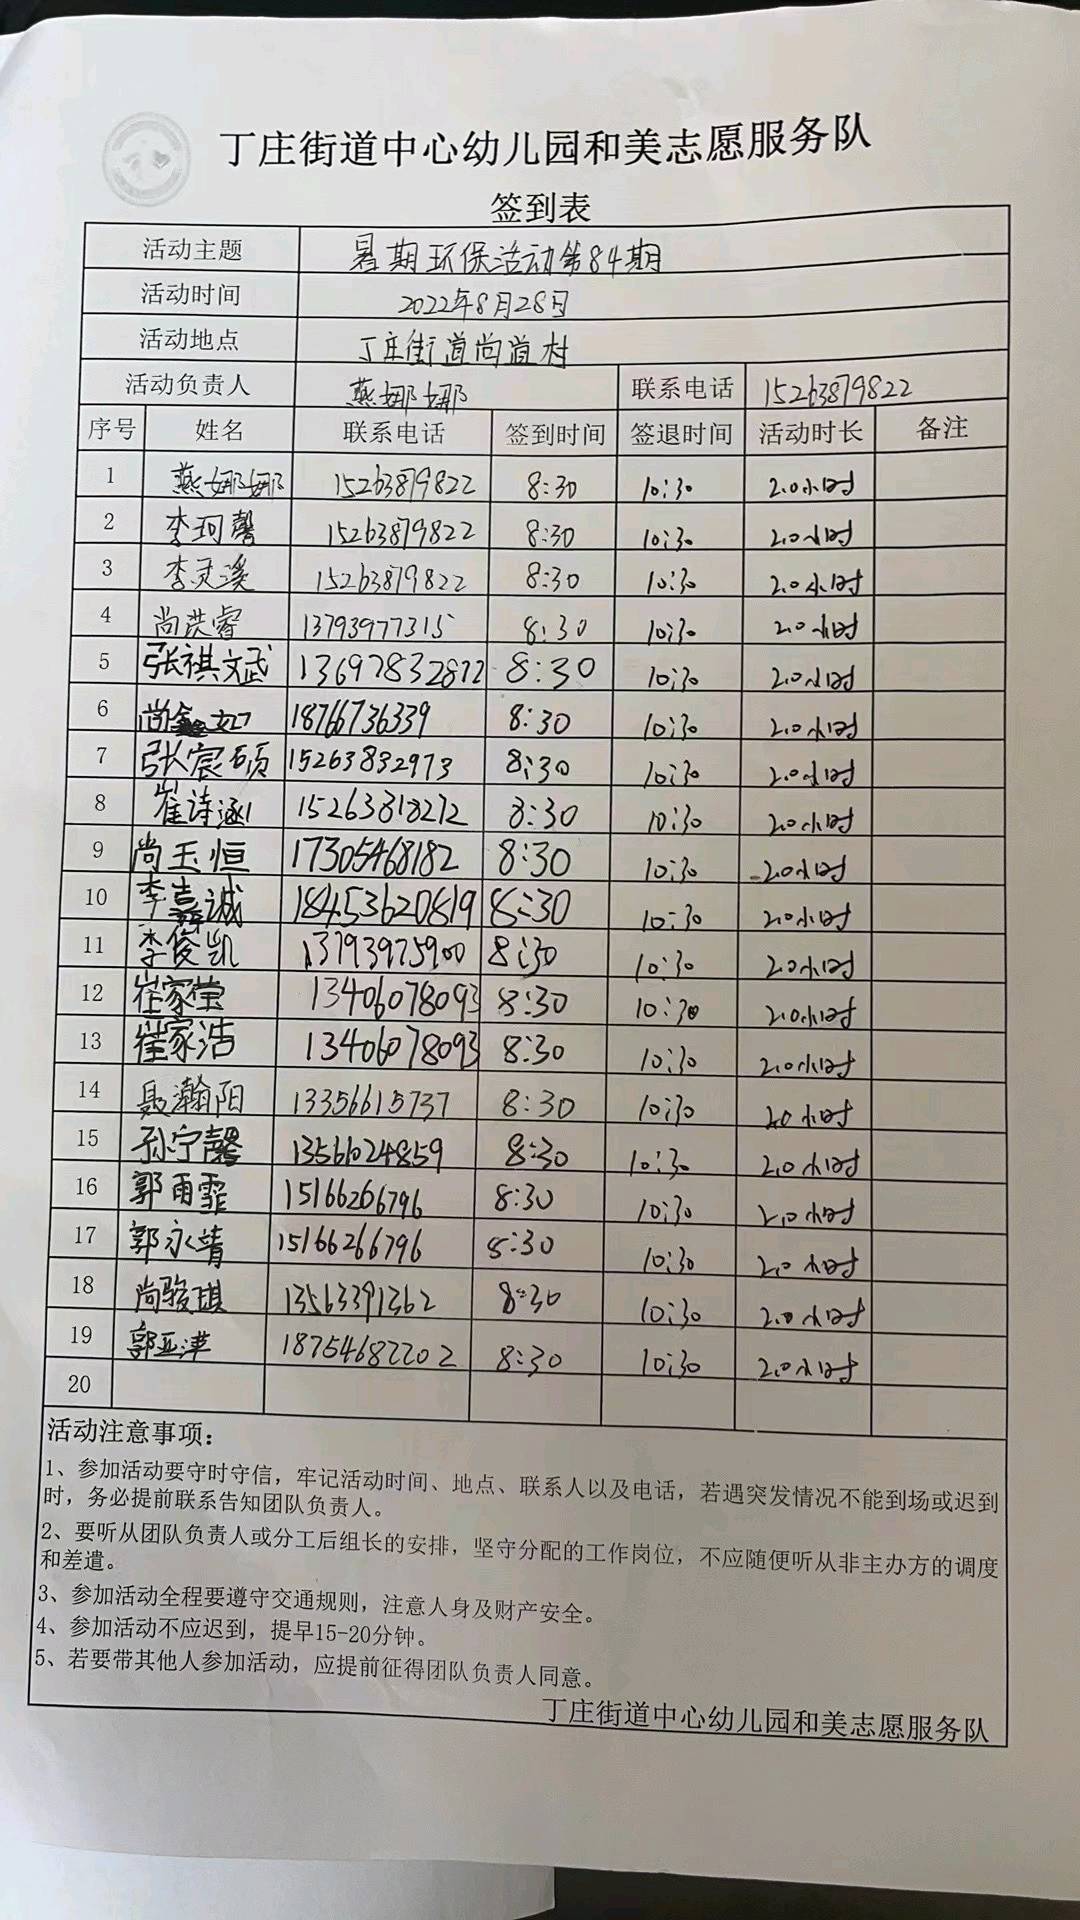 丁庄街道中心幼儿园和美志愿服务队
签到表
活动主题 暑期环保活动第84期
活动时间 2022年8月28日
活动地点 丁庄街道尚道村
活动负责人 燕娜娜 联系电话 15263879822
序号 姓名 联系电话 签到时间 签退时间 活动时长 备注
1 燕娜娜 15263879822 8:30 10:30 2.0小时
2 李珂馨 15263879822 8:30 10:30 2.0小时
3 李灵溪 15263879822 8:30 10:30 2.0小时
4 尚洪睿 13793977315 8:30 10:30 2.0小时
5 张祺文武 13697832812 8:30 10:30 2.0小时
6 18766736339 8:30 10:30 2.0小时
7 张宸硕 15263832973 8:30 10:30 2.0小时
8 崔诗涵 15263818212 8:30 10:30 2.0小时
9 尚玉恒 17305468182 8:30 10:30 2.0小时
10 李嘉诚 18453620819 8:30 10:30 2.0小时
11 李俊凯 13793975900 8:30 10:30 2.0小时
12 崔家莹 13406078093 8:30 10:30 2.0小时
13 崔家浩 13406078093 8:30 10:30 2.0小时
14 聂瀚阳 13356615737 8:30 10:30 2.0小时
15 孙宁馨 13561024859 8:30 10:30 2.0小时
16 郭雨霏 15166266796 8:30 10:30 2.0小时
17 郭永靖 15166266796 8:30 10:30 2.0小时
18 尚骏琪 13563391362 8:30 10:30 2.0小时
19 郭亚津 18754682202 8:30 10:30 2.0小时
20
活动注意事项：
1、参加活动要守时守信，牢记活动时间、地点、联系人以及电话，若遇突发情况不能到场或迟到
时，务必提前联系告知团队负责人。
2、要听从团队负责人或分工后组长的安排，坚守分配的工作岗位，不应随便听从非主办方的调度
和差遣。
3、参加活动全程要遵守交通规则，注意人身及财产安全。
4、参加活动不应迟到，提早15-20分钟。
5、若要带其他人参加活动，应提前征得团队负责人同意。
丁庄街道中心幼儿园和美志愿服务队